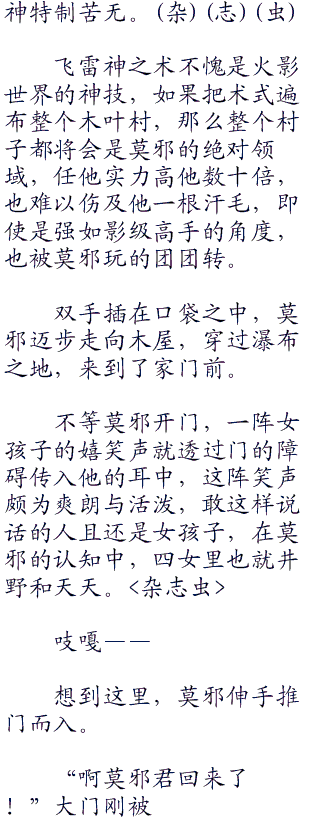 神特制苦无。(杂)(志)(虫)
飞雷神之术不愧是火影
世界的神技，如果把术式遍
布整个木叶村，那么整个村
子都将会是莫邪的绝对领
域，任他实力高他数十倍，
也难以伤及他一根汗毛，即
使是强如影级高手的角度，
也被莫邪玩的团团转。
双手插在口袋之中，莫
邪迈步走向木屋，穿过瀑布
之地，来到了家门前。
不等莫邪开门，一阵女
孩子的嬉笑声就透过门的障
碍传入他的耳中，这阵笑声
颇为爽朗与活泼，敢这样说
话的人且还是女孩子，在莫
邪的认知中，四女里也就井
野和天天。<杂志虫>
吱嘎——
想到这里，莫邪伸手推
门而入。
“啊莫邪君回来了
！”大门刚被